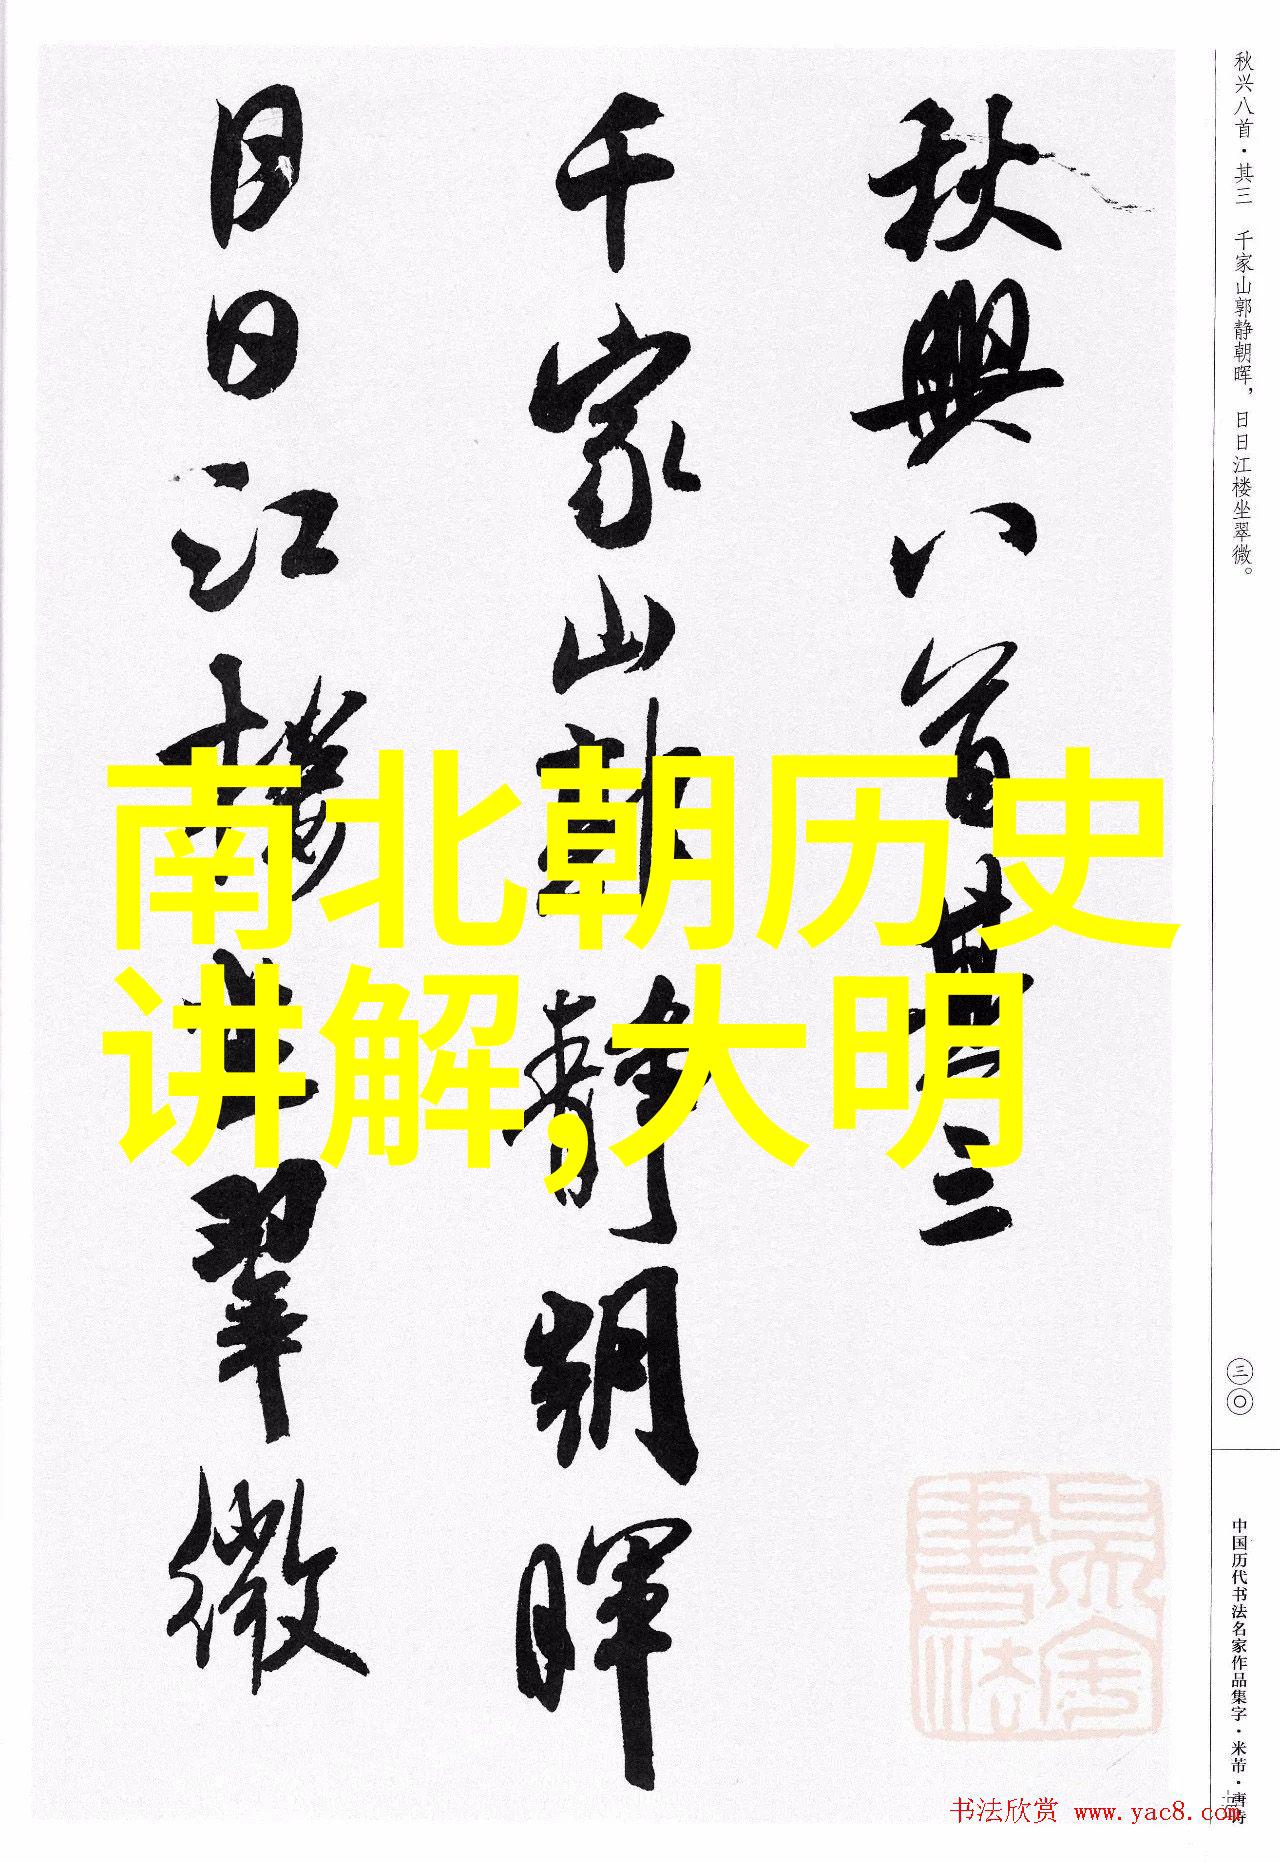 秋興八首其三
千家山郭静朝暉
日日江樓坐翠微
南北朝历史
讲解,大明
秋兴八首·其三 千家山郭静朝晖，日日江楼坐翠微。
三〇
中国历代书法名家作品集字·米芾·唐诗
书法欣赏 www.yac8.com